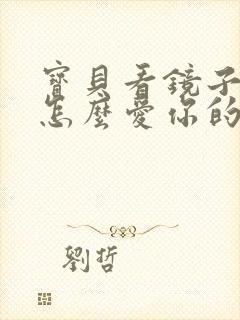 寶貝看鏡子
怎麼愛你的
劉哲